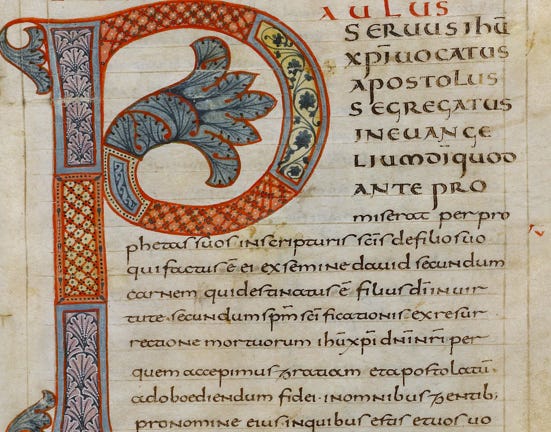 PAULUS
SERUUS IHŪ
XPĪ UOCATUS
APOSTOLUS
SEGREGATUS
IN EUANGE
LIUM DĪ QUOD
ANTE PRO
miserat per pro
phetas suos in scripturis scīs de filio suo
qui factus ē ei ex semine dauid secundum
carnem qui destinatus ē filius dī in uir
tute · secundum spm̄ scīficationis ex resur
rectione mortuorum ihū xpī dnī nrī per
quem accepimus gratiam et apostolatū ·
ad oboediendum fidei · in omnibus gentib;
pro nomine eius in quibus estis et uos uo